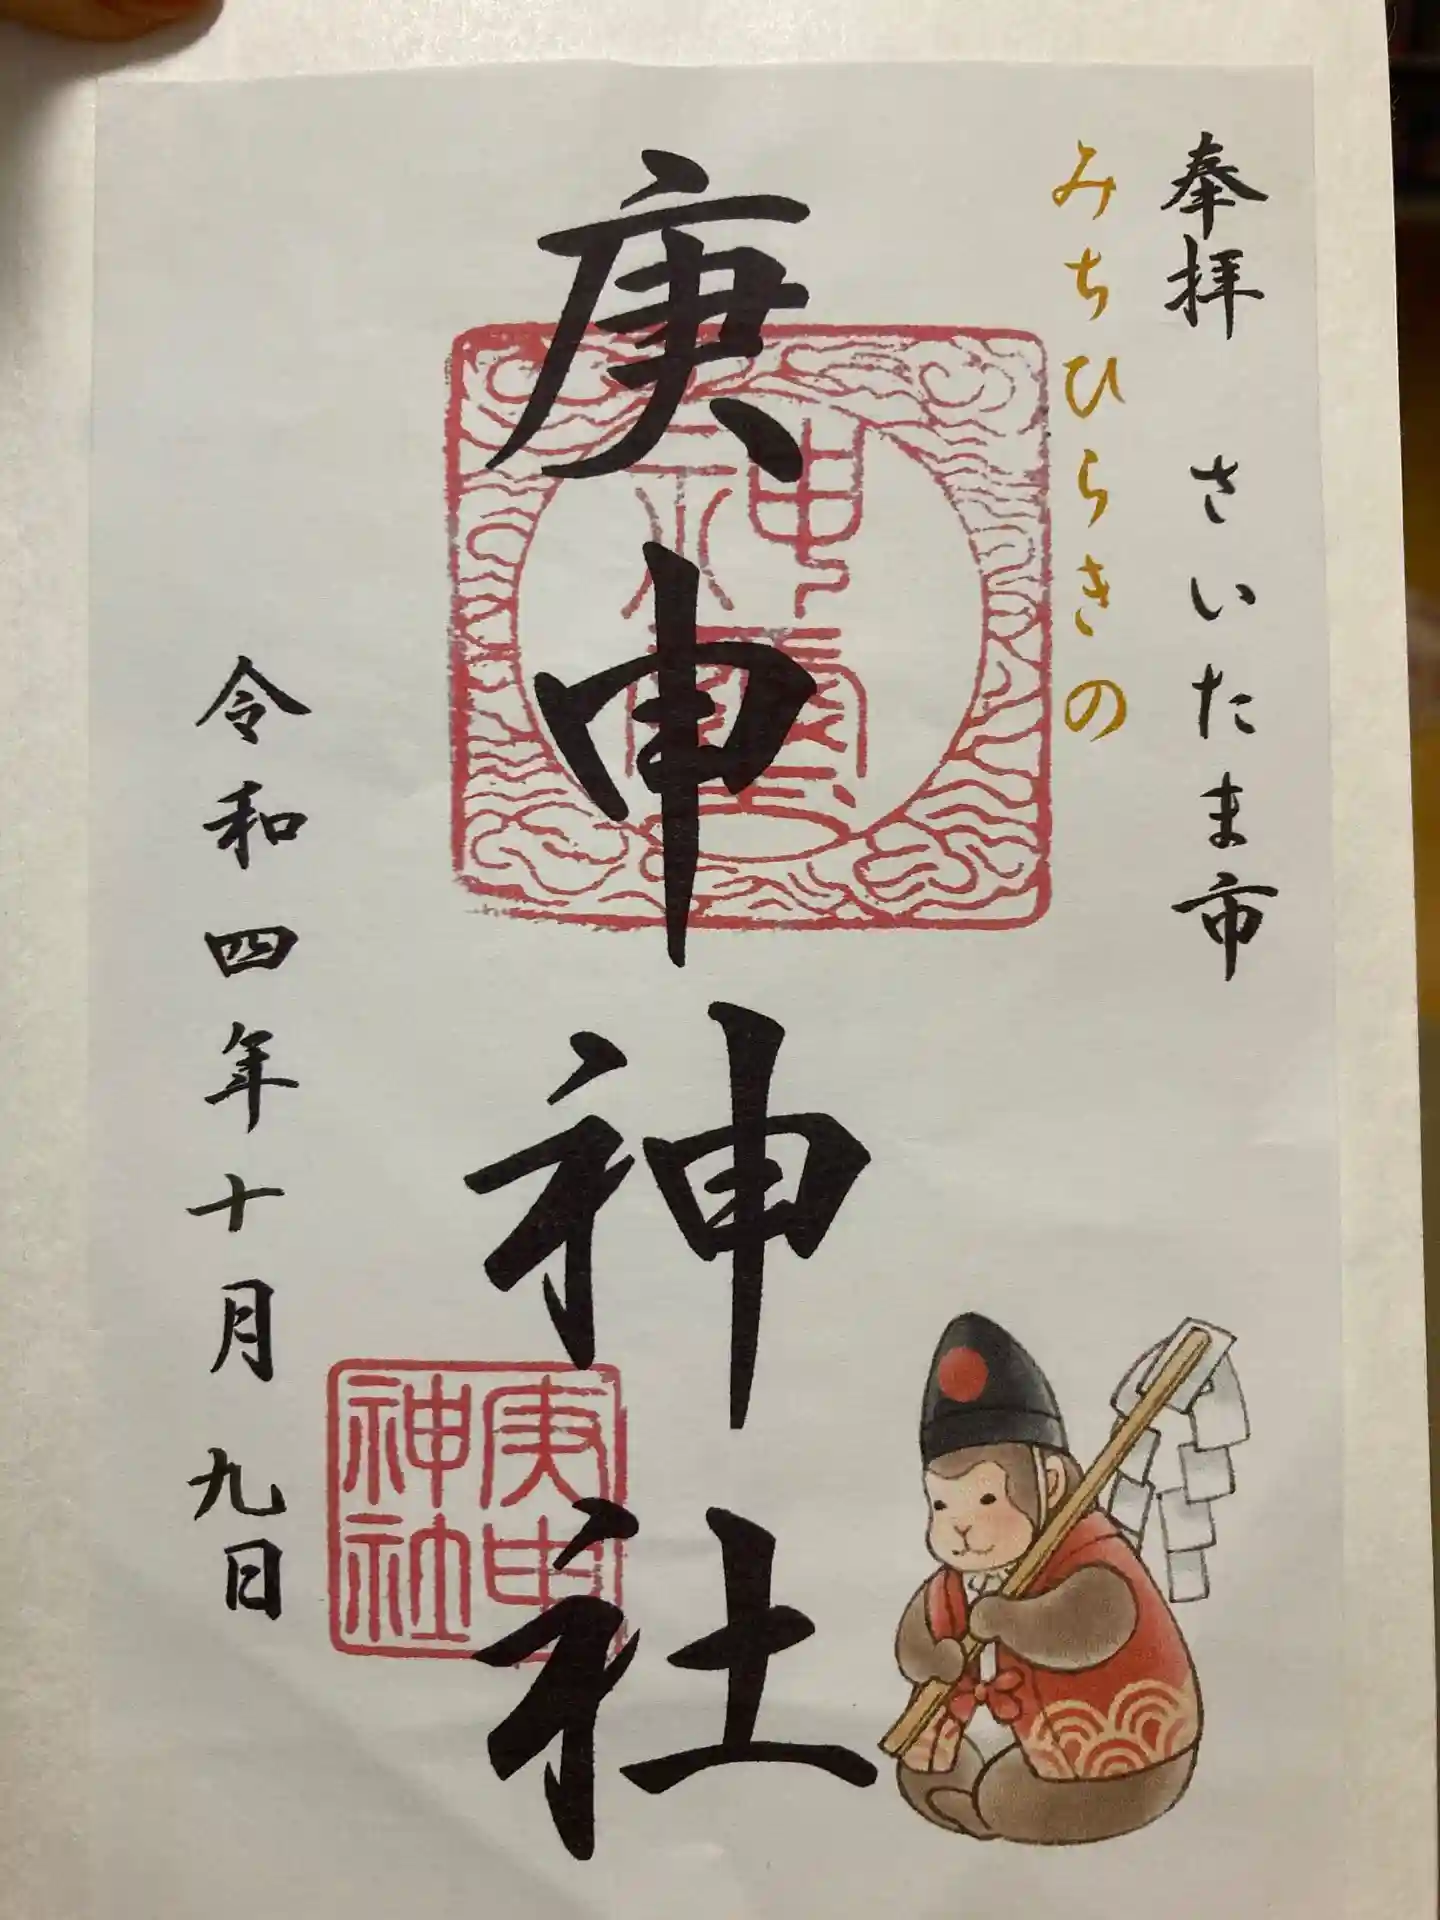 奉拝 さいたま市
みちひらきの
庚申神社
庚申
神社
令和四年十月九日